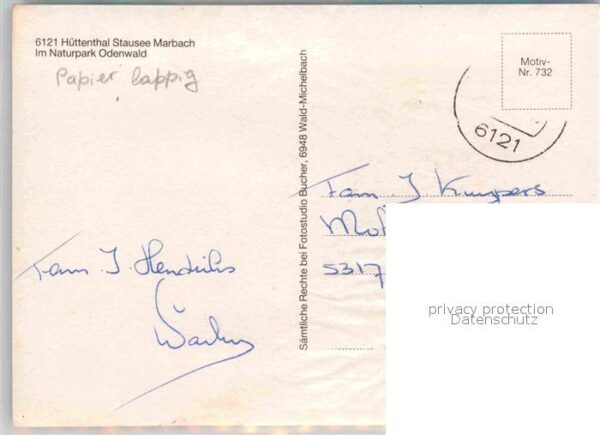 6121 Hüttenthal Stausee Marbach
Im Naturpark Odenwald
Papier lappig
Motiv-
Nr. 732
6121
Sämtliche Rechte bei Fotostudio Bucher, 6948 Wald-Michelbach
Fam J Kuypers
5317
Fam J. Hendriks
privacy protection
Datenschutz